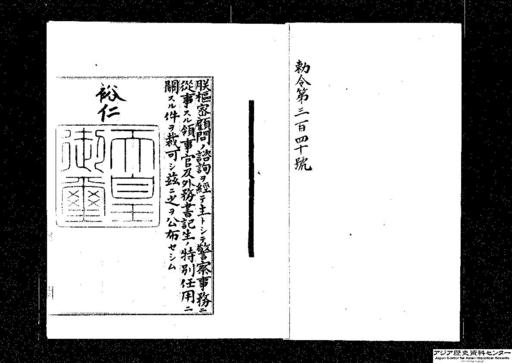 勅令第三百四十號
朕樞密顧問ノ諮詢ヲ經テ主トシテ警察事務ニ
從事スル領事官及外務書記生ノ特別任用ニ
關スル件ヲ裁可シ茲ニ之ヲ公布セシム
裕仁
天皇
御璽
アジア歴史資料センター
Japan Center for Asian Historical Records